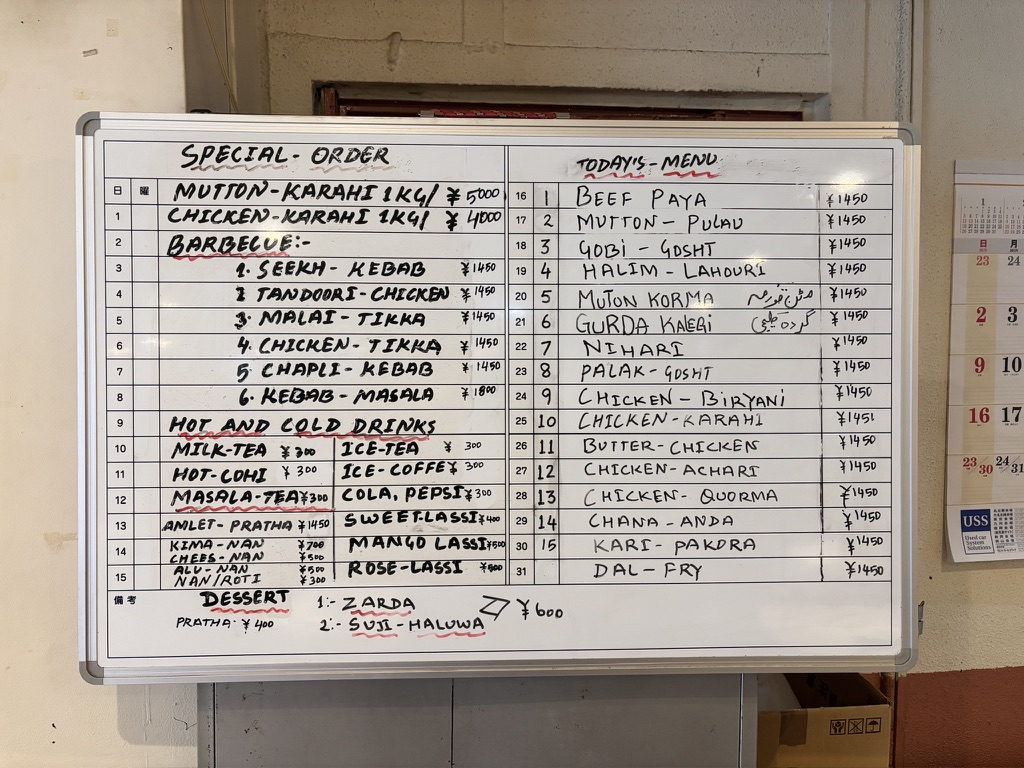 SPECIAL- ORDER
日 曜 MUTTON-KARAHI 1KG/ ¥ 5000
1 CHICKEN-KARAHI 1KG/ ¥ 4000
2 BARBECUE:-
3 1. SEEKH- KEBAB ¥1450
4 2 TANDOORI-CHICKEN ¥1450
5 3. MALAI- TIKKA ¥1450
6 4. CHICKEN- TIKKA ¥1450
7 5. CHAPLI- KEBAB ¥1450
8 6. KEBAB- MASALA ¥1800
9 HOT AND COLD DRINKS
10 MILK-TEA ¥300 ICE-TEA ¥ 300
11 HOT-COHI ¥300 ICE-COFFE ¥ 300
12 MASALA-TEA ¥300 COLA, PEPSI ¥300
13 AMLET- PRATHA ¥1450 SWEET-LASSI ¥400
14 KIMA-NAN ¥700 MANGO LASSI ¥500
CHEES-NAN ¥500
15 ALU-NAN ¥500 ROSE-LASSI ¥500
NAN/ROTI ¥300
備考 DESSERT 1:- ZARDA ¥600
PRATHA- ¥400 2:- SUJI-HALUWA
TODAY'S- MENU
16 1 BEEF PAYA ¥1450
17 2 MUTTON- PULAU ¥1450
18 3 GOBI- GOSHT ¥1450
19 4 HALIM- LAHOURI ¥1450
20 5 MUTON KORMA مٹن قورمہ ¥1450
21 6 GURDA KALEGI گردہ کلیجی ¥1450
22 7 NIHARI ¥1450
23 8 PALAK-GOSHT ¥1450
24 9 CHICKEN-BIRYANI ¥1450
25 10 CHICKEN-KARAHI ¥1451
26 11 BUTTER-CHICKEN ¥1450
27 12 CHICKEN-ACHARI ¥1450
28 13 CHICKEN- QUORMA ¥1450
29 14 CHANA-ANDA ¥1450
30 15 KARI- PAKORA ¥1450
31 DAL- FRY ¥1450
1
日 月
23 24
2 3
9 10
16 17
23/30 24/31
USS
Used car
System
Solutions